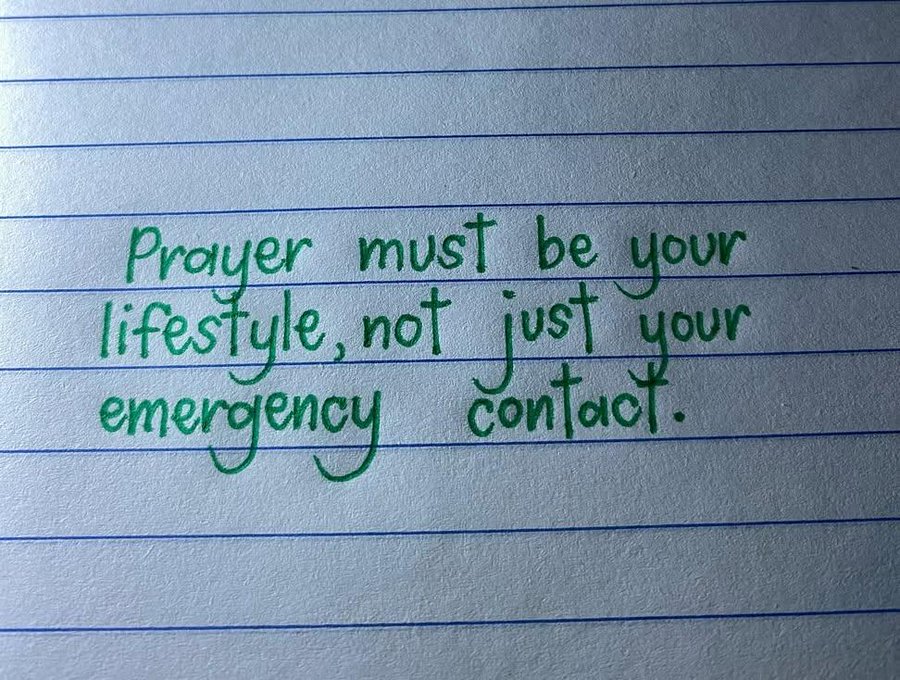 Prayer must be your
lifestyle, not just your
emergency contact.